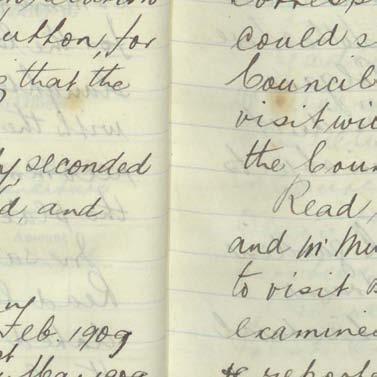 utton, for
that the
seconded
d, and
Feb. 1909
could s
Council
visit wi
the Coun
Read,
and Mr Mu
to visit
examine
& reporte